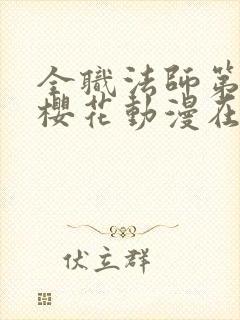 全職法師第
櫻花動漫在
伏立群